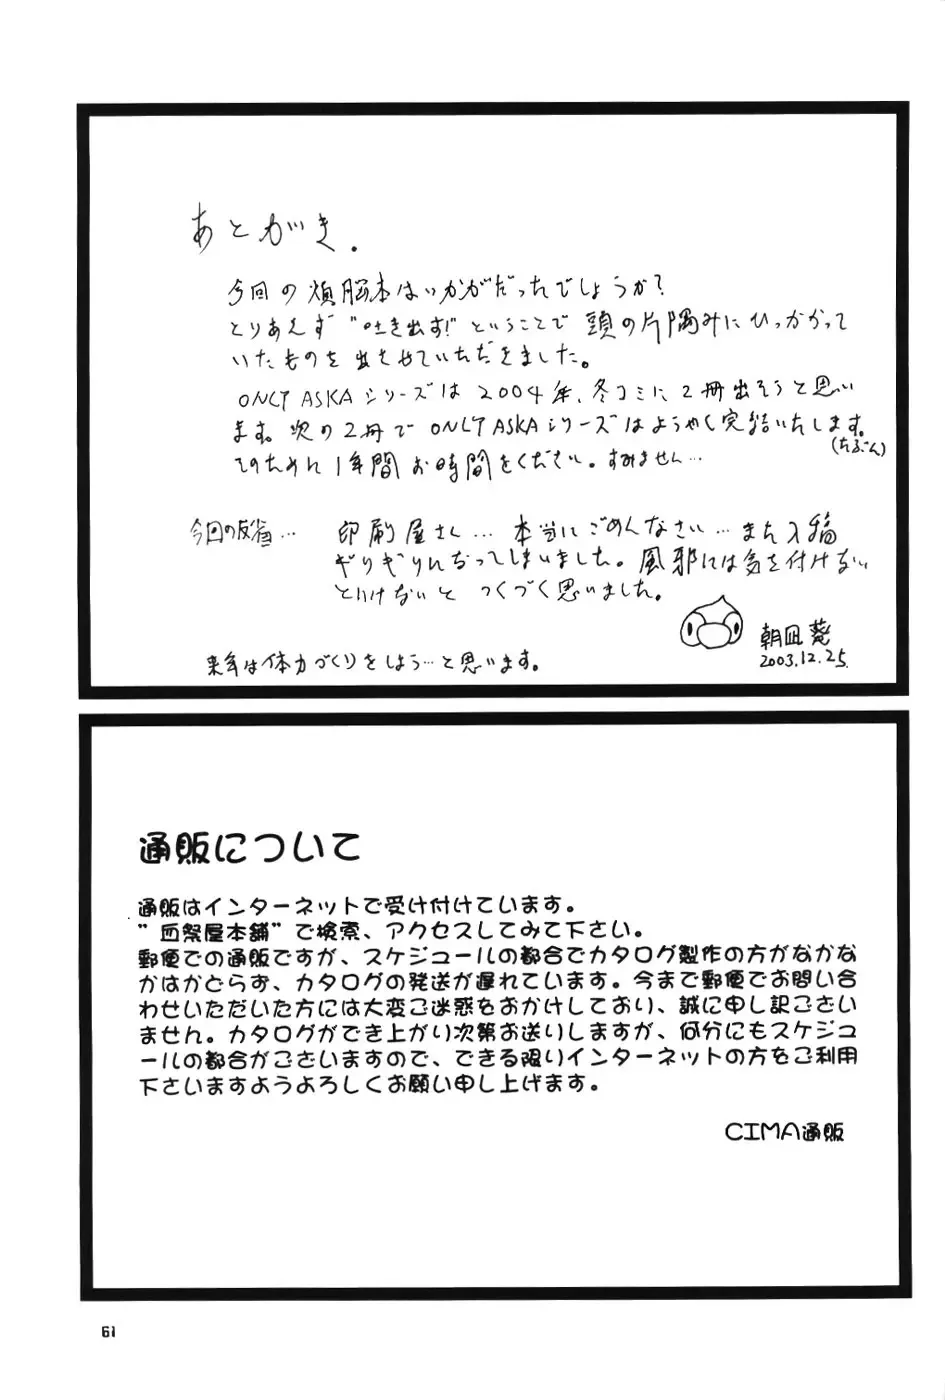 あとがき.
今回の煩脳本はいかがだったでしょうか?
とりあえず"吐き出す!"ということで頭の片隅みにひっかかって
いたものを出させていただきました。
ONLY ASKAシリーズは2004年、冬コミに2冊出そうと思い
ます。次の2冊でONLY ASKAシリーズはようやく完結いたします。
(たぶん)
そのために1年間お時間をください。すみません…
今回の反省… 印刷屋さん…本当にごめんなさい…また入稿
ギリギリになってしまいました。風邪には気を付けない
といけないとつくづく思いました。
来年は体力づくりをしよう…と思います。
朝凪葵
2003.12.25.
通販について
通販はインターネットで受け付けています。
"血祭屋本舗"で検索、アクセスしてみて下さい。
郵便での通販ですが、スケジュールの都合でカタログ製作の方がなかな
かはかどらず、カタログの発送が遅れています。今まで郵便でお問い合
わせいただいた方には大変ご迷惑をおかけしており、誠に申し訳ござい
ません。カタログができ上がり次第お送りしますが、何分にもスケジュ
ールの都合がございますので、できる限りインターネットの方をご利用
下さいますようよろしくお願い申し上げます。
CIMA通販
61